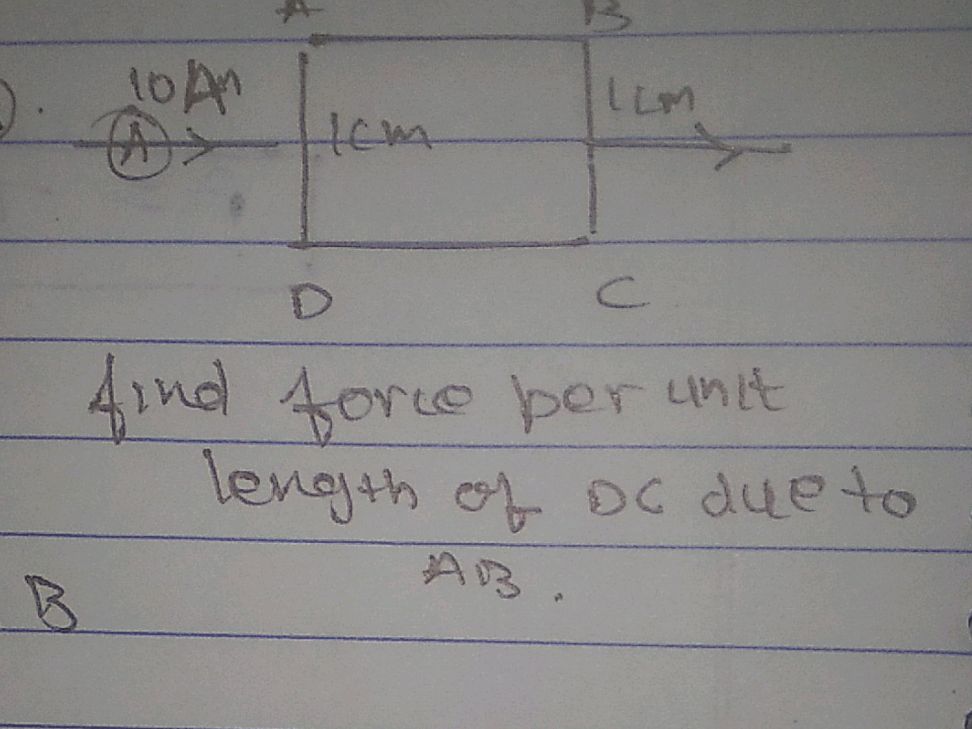 A B
10 Am
1cm
A
1cm
D C
find force per unit
length of DC due to
AB.
B